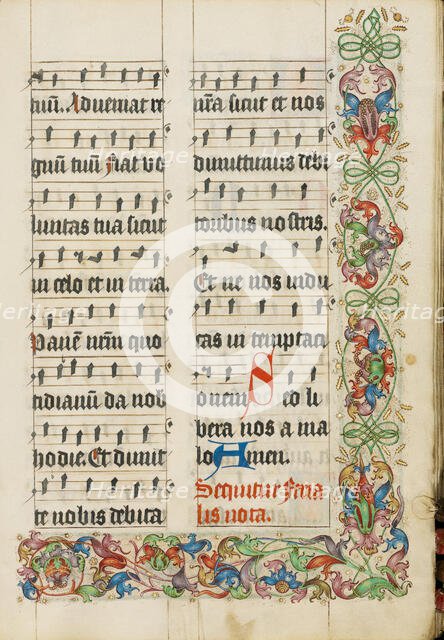 tuū. Adveniat re
gnū tuū fiat vo
luntas tua sicut
in celo et in terra.
Panē nr̄m quo
tidianū da nob
hodie. Et dimit
te nobis debita
nr̄a sicut et nos
dimittimus debi
toribus nostris.
Et ne nos indu
cas in temptaci
onem Sed li
bera nos a ma
lo Amen.
Sequitur feria
lis nota.
Heritage
Images